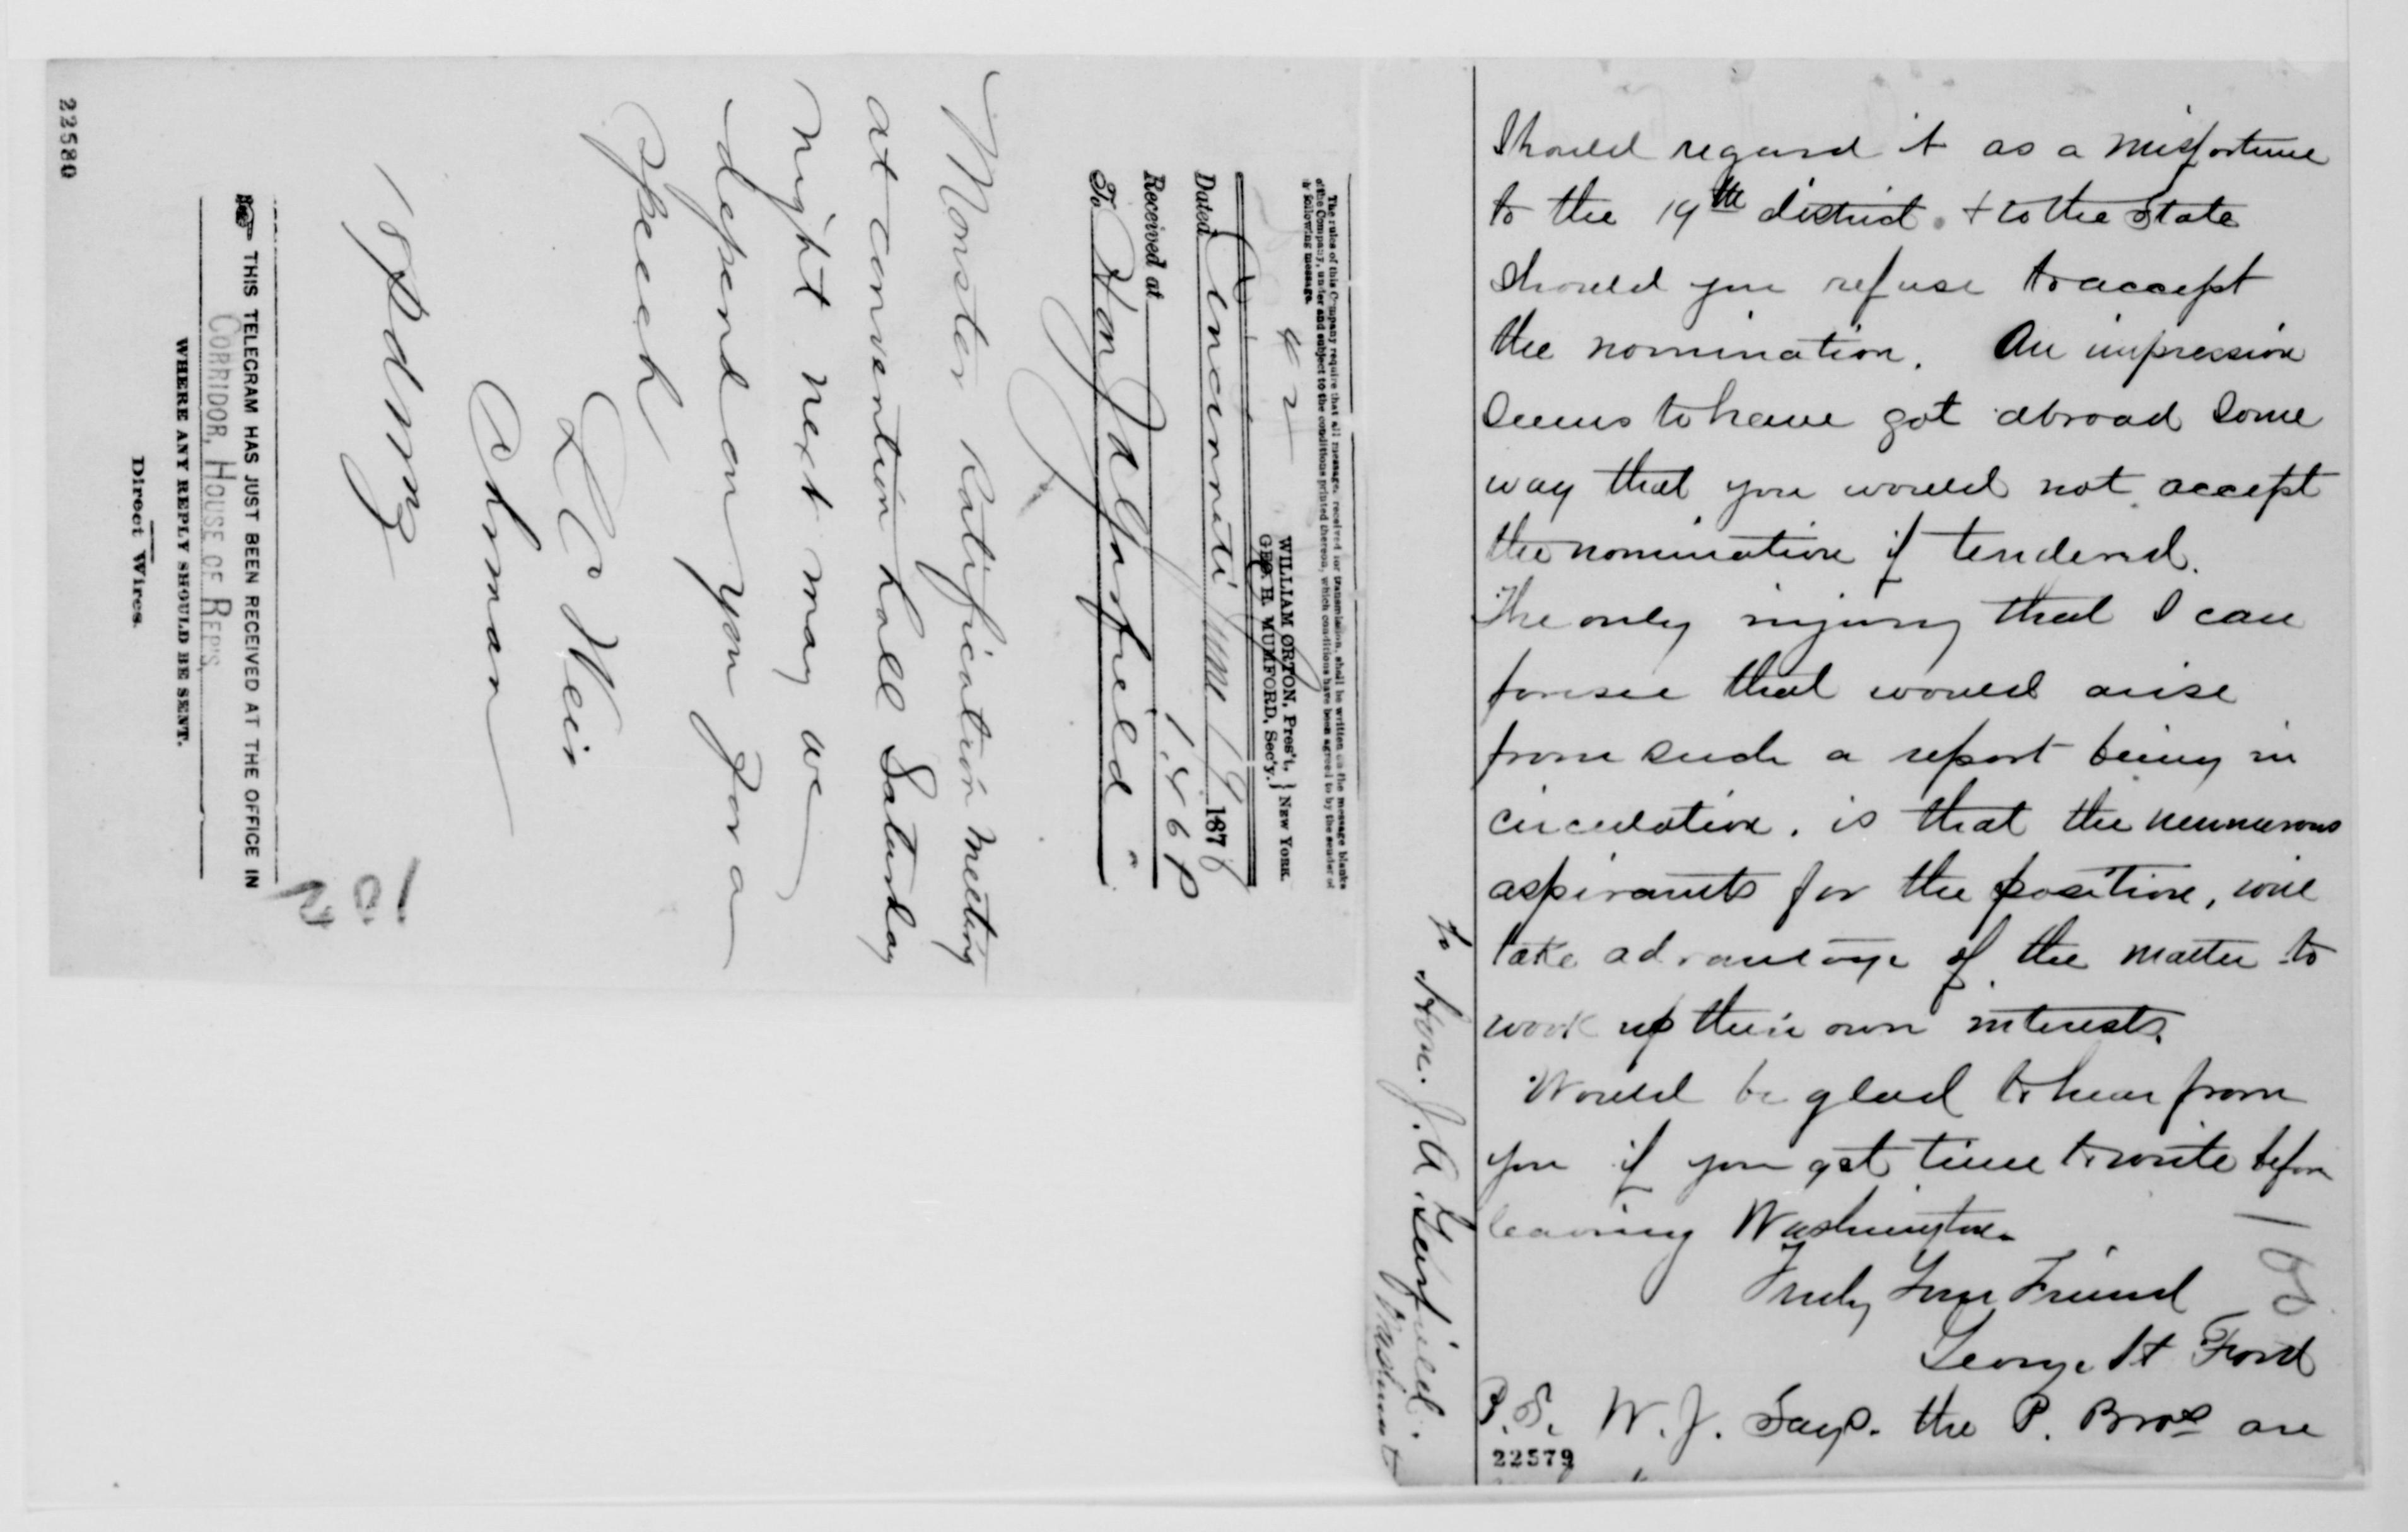 The rules of this Company require that all messages received for transmission, shall be written on the message blanks
of the Company, under and subject to the conditions printed thereon, which conditions have been agreed to by the sender of
following message.
42
WILLIAM ORTON, Pres't, } NEW YORK.
GEO. H. MUMFORD, Sec'y.
Dated Cincinnati June 19 1876
Received at 1.46 P
To Hon J A Garfield
Monster Ratification Meeting
at convention hall Saturday
night next may we
depend on you for a
Speech
L C Weir
Chman
18 Pd
102
THIS TELEGRAM HAS JUST BEEN RECEIVED AT THE OFFICE IN
CORRIDOR, HOUSE OF REP'S,
WHERE ANY REPLY SHOULD BE SENT.
Direct Wires.
22580
Should regard it as a misfortune
to the 19th district. + to the State
should you refuse to accept
the nomination. An impression
seems to have got abroad some
way that you would not accept
the nomination if tendered.
The only injury that I can
forsee that would arise
from such a report being in
circulation. is that the numerous
aspirants for the position, will
take advantage of the matter to
work up their own interests.
Would be glad to hear from
you if you get time to write before
leaving Washington.
Truly Your Friend
George H Ford
P.S. W. J. Says. the P. Bros are
22579
to Hon. J. A. Garfield.